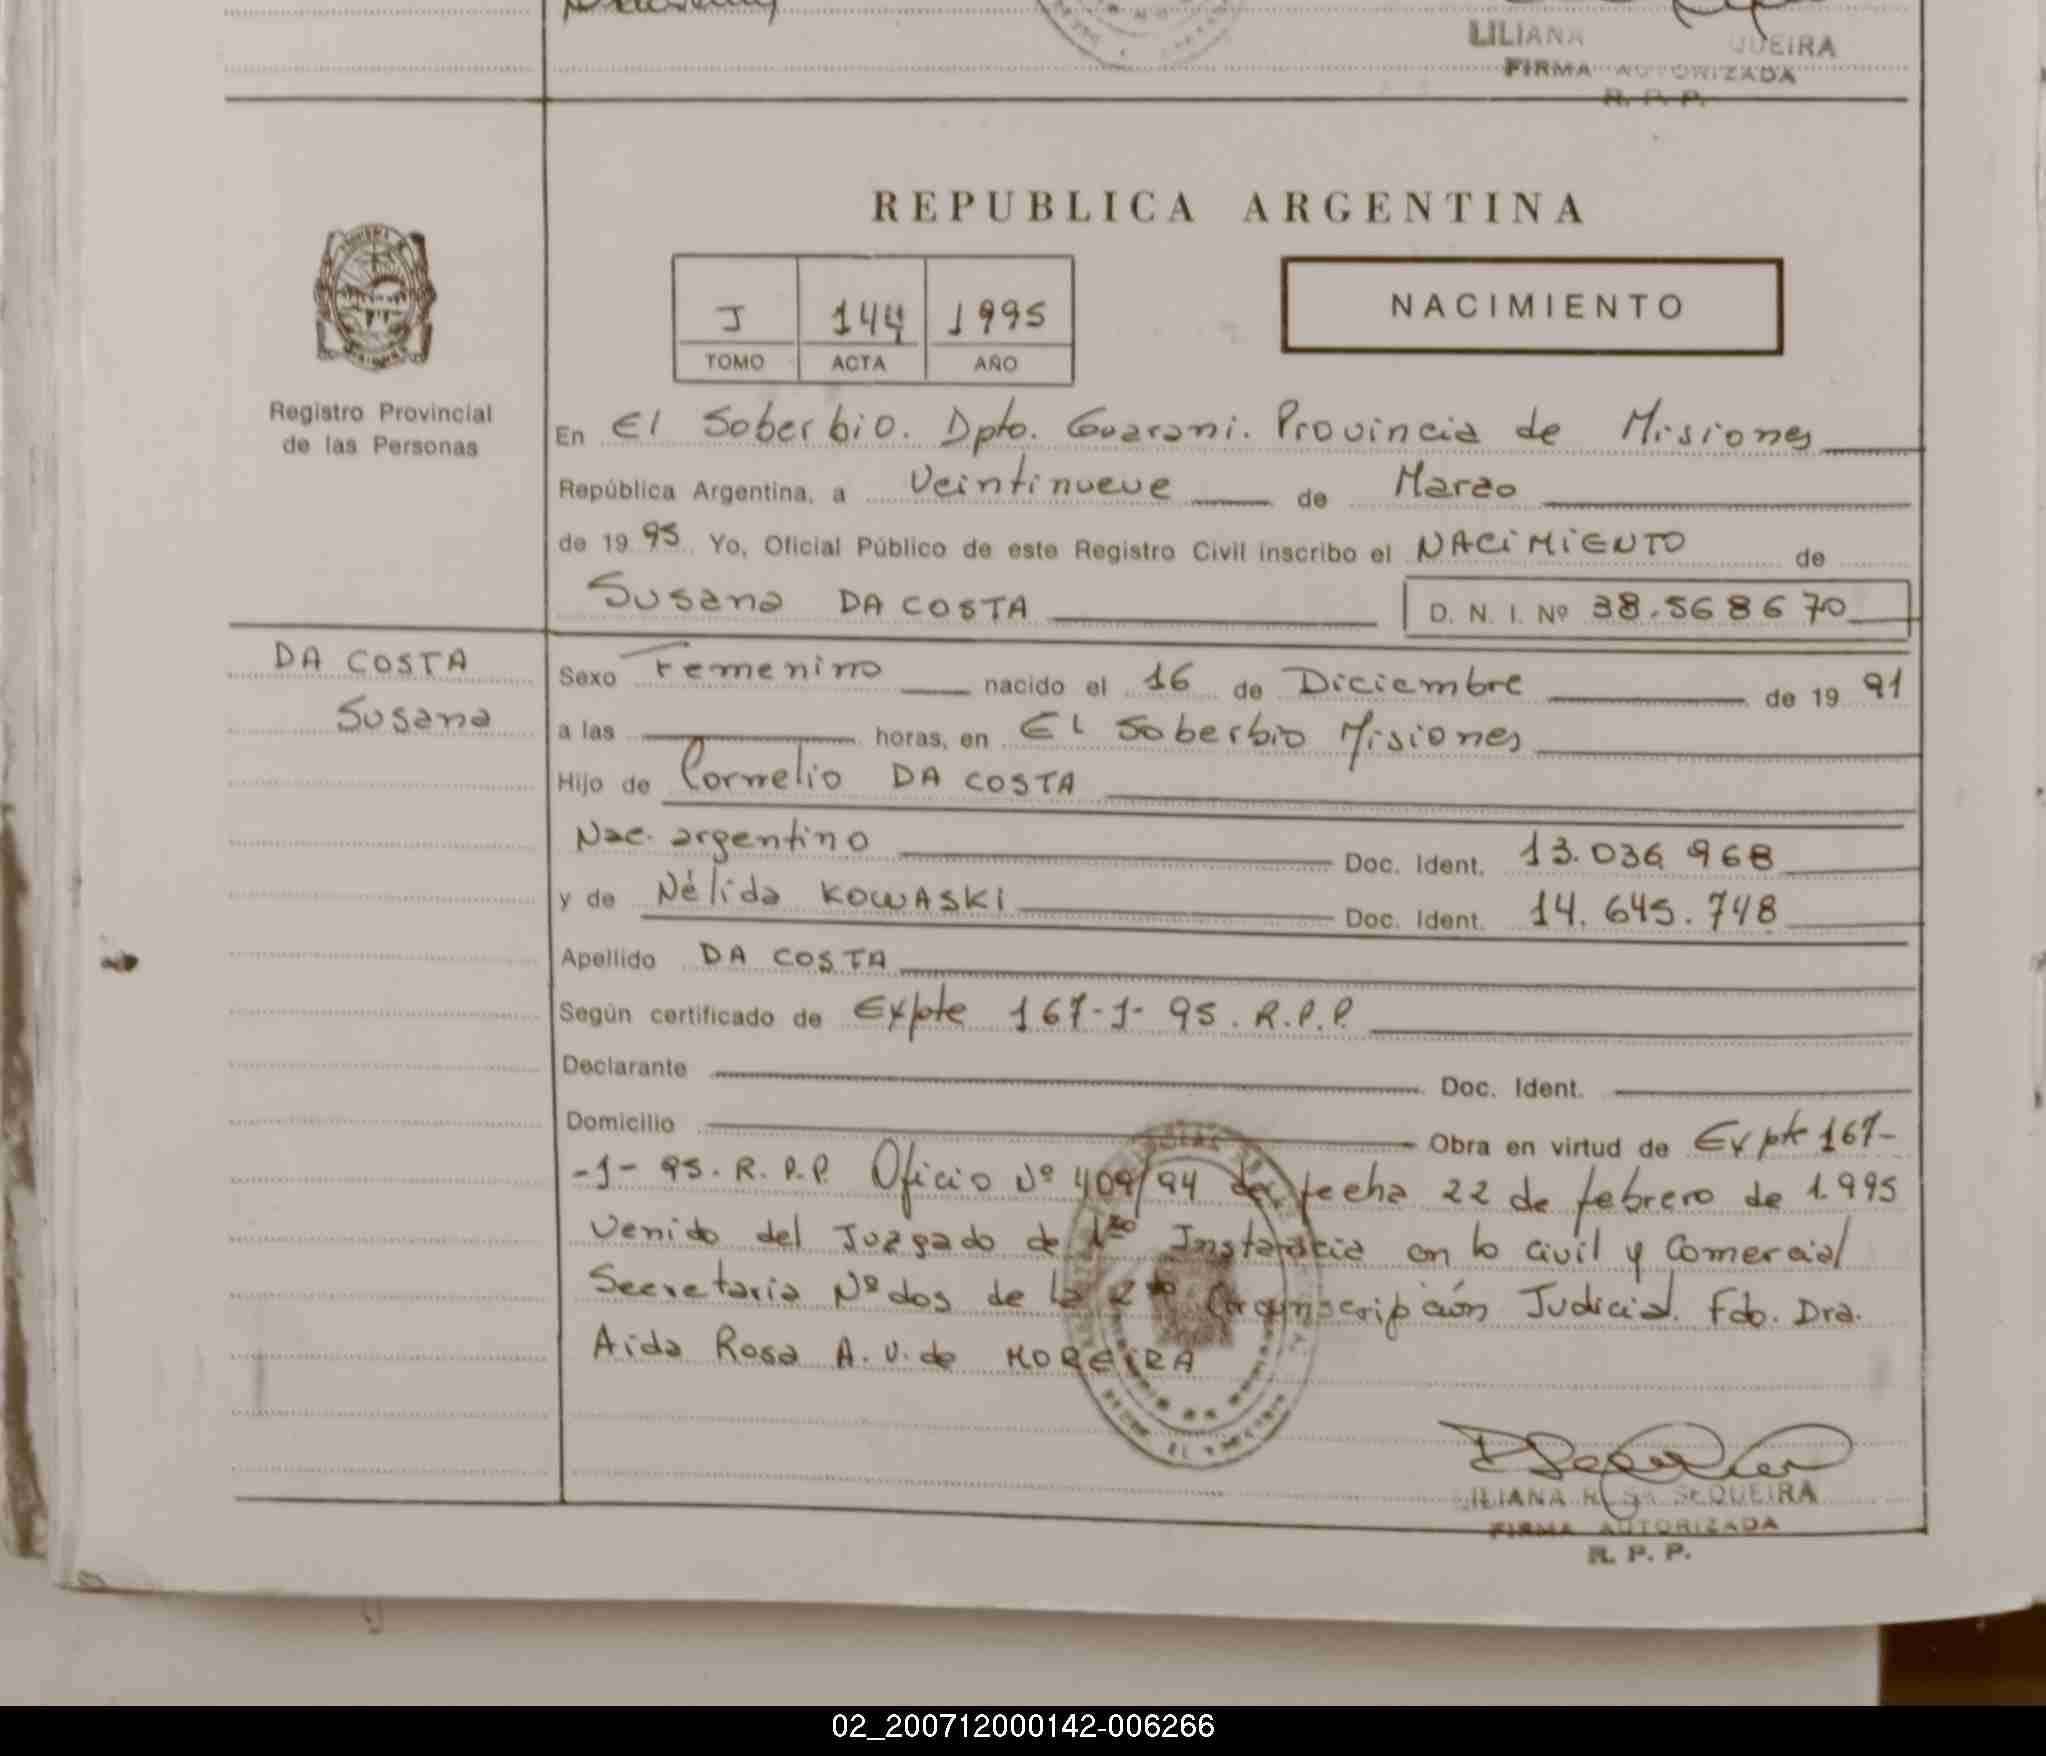 LILIANA
FIRMA AUTORIZADA
R. P. P.
REPUBLICA ARGENTINA
J 144 1995
TOMO ACTA AÑO
NACIMIENTO
Registro Provincial
de las Personas
En El Soberbio. Dpto. Guarani. Provincia de Misiones
República Argentina, a Veintinueve de Marzo
de 19 95 Yo, Oficial Público de este Registro Civil inscribo el NACIMIENTO de
Susana DA COSTA D. N. I. Nº 38.568670
DA COSTA
Susana
Sexo Femenino nacido el 16 de Diciembre de 19 91
a las horas, en El Soberbio Misiones
Hijo de Cornelio DA COSTA
Nac. argentino Doc. Ident. 13.036 968
y de Nélida KOWASKI Doc. Ident. 14.645.748
Apellido DA COSTA
Según certificado de Expte 167-1-95. R.P.P.
Declarante Doc. Ident.
Domicilio Obra en virtud de Expte 167-
-1-95. R.P.P. Oficio Nº 409/94 de fecha 22 de febrero de 1.995
venido del Juzgado de 1ra Instancia en lo civil y Comercial
Secretaria Nº dos de la 2da Circunscripción Judicial. Fdo. Dra.
Aida Rosa A. V. de MOREIRA
LILIANA SEQUEIRA
FIRMA AUTORIZADA
R. P. P.
02_200712000142-006266